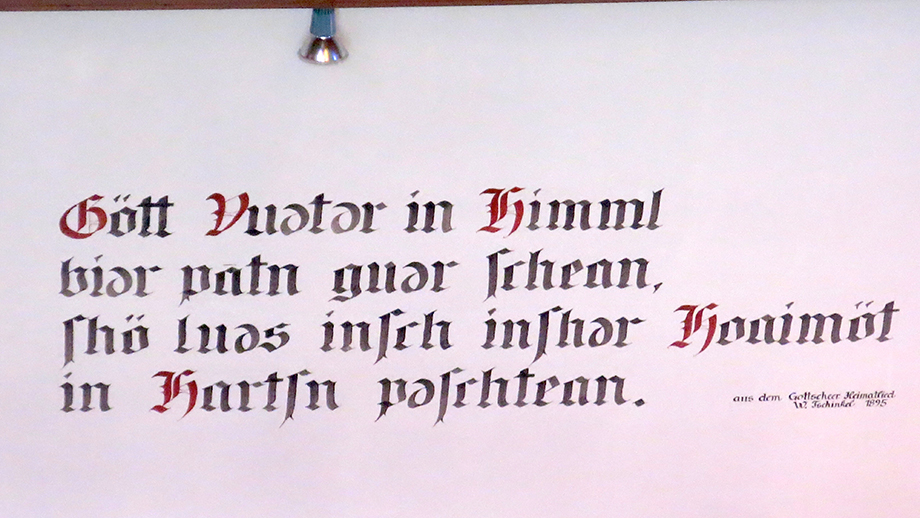 Gött Vuətər in Himml
biər pātn guər schean,
shö luəs insch inshər Hoaimöt
in Hartsn pəschtean.
aus dem Gottscheer Heimatlied
W. Tschinkel 1895